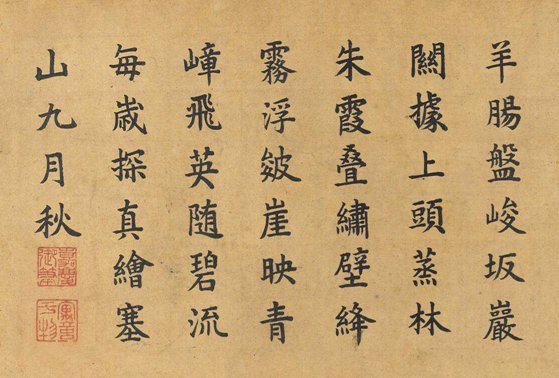 羊腸盤峻坂巖
關據上頭蒸林
朱霞叠繡壁絳
霧浮皴崖映青
嶂飛英随碧流
每歲探真繪塞
山九月秋
嘉慶御筆